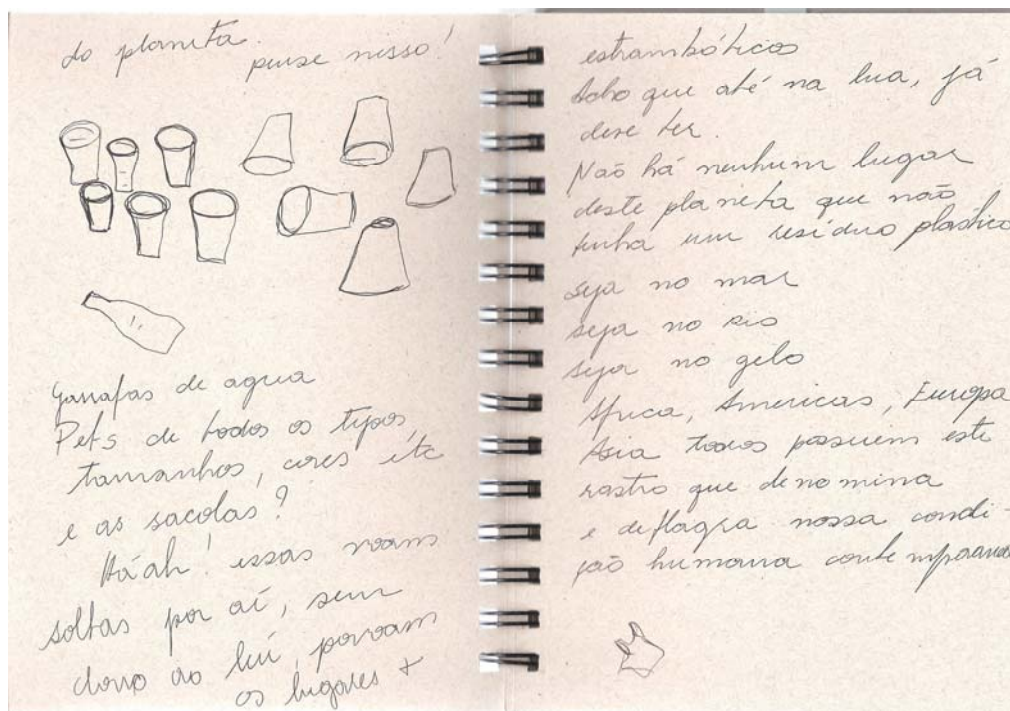 do planeta.
pense nisso!
garrafas de agua
Pets de todos os tipos,
tamanhos, cores etc
e as sacolas?
Aáah! essas voam
soltas por aí, sem
dono ao léu, povoam
os lugares +
estrambóticos
Acho que até na lua, já
deve ter.
Não há nenhum lugar
deste planeta que não
tenha um resíduo plástico
seja no mar
seja no rio
seja no gelo
Africa, Americas, Europa
Asia todos possuem este
rastro que denomina
e deflagra nossa condi-
ção humana